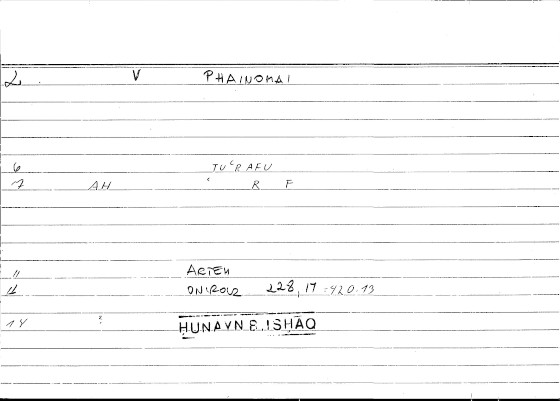 2. V PHAINOMAI
6 TUʿRAFU
7 AH ʿ R F
11 ARTEM
12 ONIROCR 228,17 = 420.13
14 ḤUNAYN B. ISḤĀQ